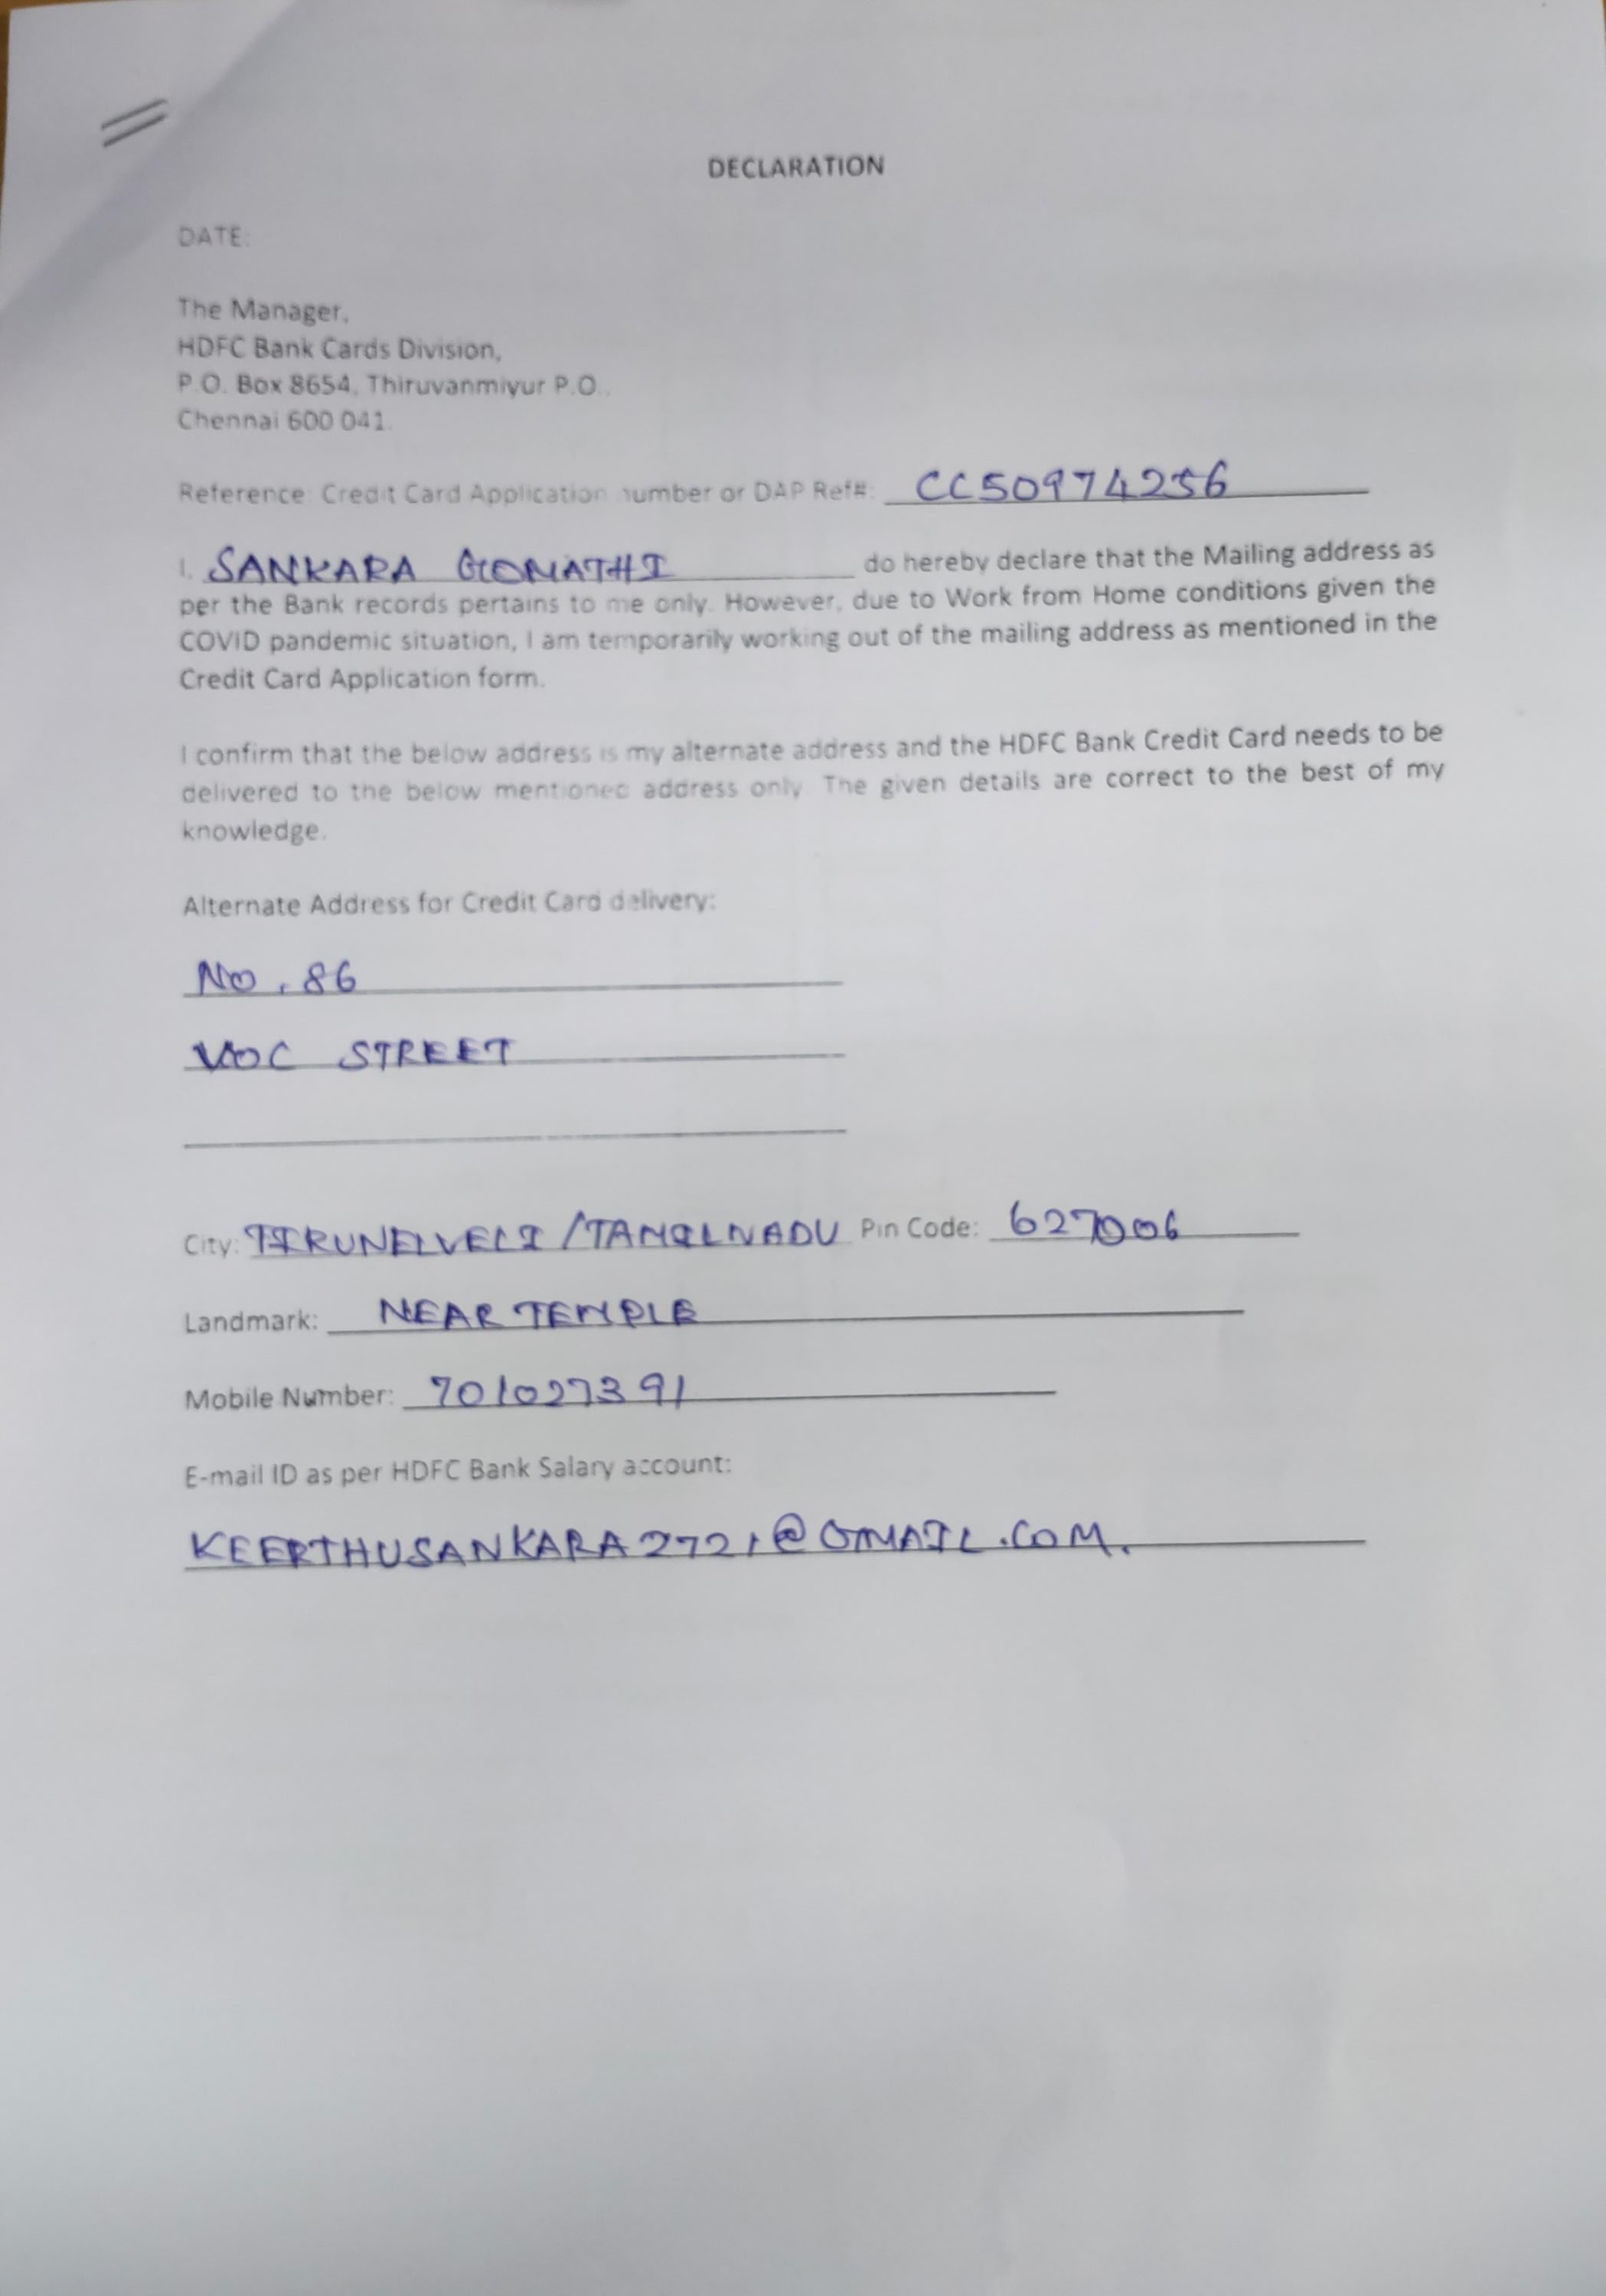 DECLARATION
DATE:
The Manager,
HDFC Bank Cards Division,
P.O. Box 8654, Thiruvanmiyur P.O.,
Chennai 600 041.
Reference: Credit Card Application number or DAP Ref#: CC50974256
I, SANKARA GOMATHI do hereby declare that the Mailing address as
per the Bank records pertains to me only. However, due to Work from Home conditions given the
COVID pandemic situation, I am temporarily working out of the mailing address as mentioned in the
Credit Card Application form.
I confirm that the below address is my alternate address and the HDFC Bank Credit Card needs to be
delivered to the below mentioned address only. The given details are correct to the best of my
knowledge.
Alternate Address for Credit Card delivery:
No. 86
VOC STREET
City: TIRUNELVELI / TAMILNADU Pin Code: 627006
Landmark: NEAR TEMPLE
Mobile Number: 701027391
E-mail ID as per HDFC Bank Salary account:
KEERTHUSANKARA2721@GMAIL.COM.